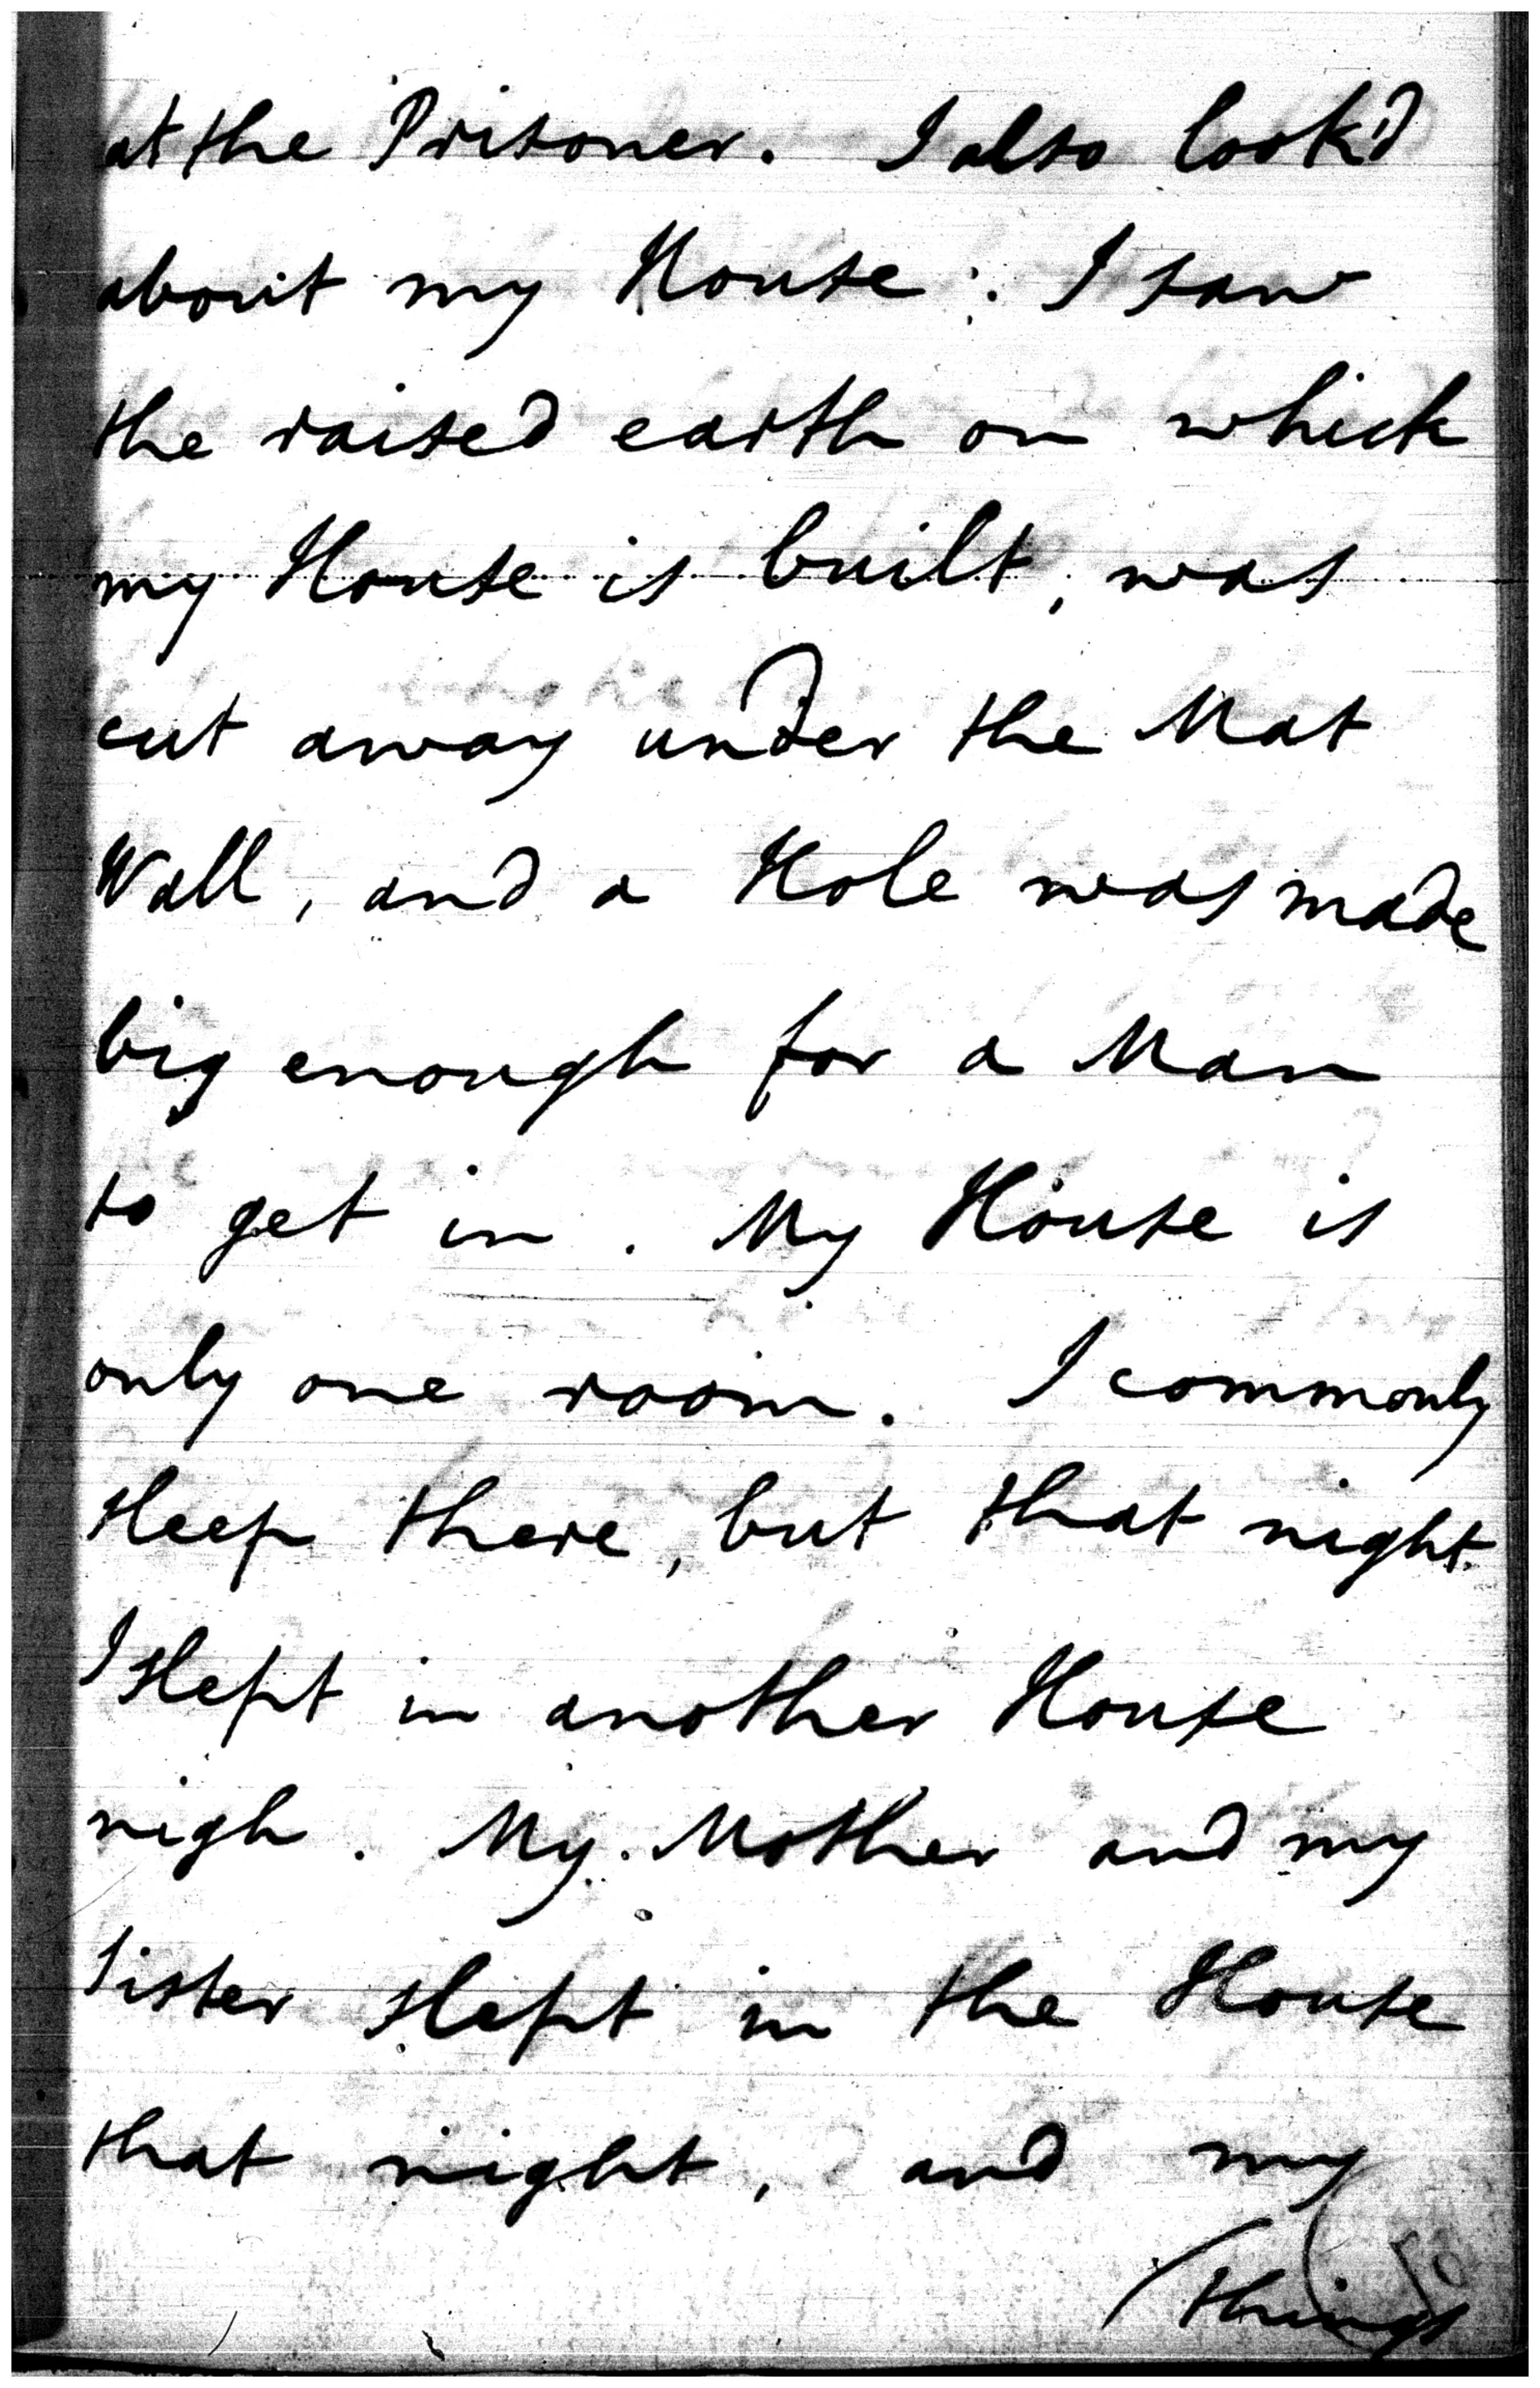 at the Prisoner. I also look'd
about my House: I saw
the raised earth on which
my House is built, was
cut away under the Mat
Wall, and a Hole was made
big enough for a Man
to get in. My House is
only one room. I commonly
sleep there, but that night
I slept in another House
nigh. My Mother and my
Sister slept in the House
that night, and my
/things